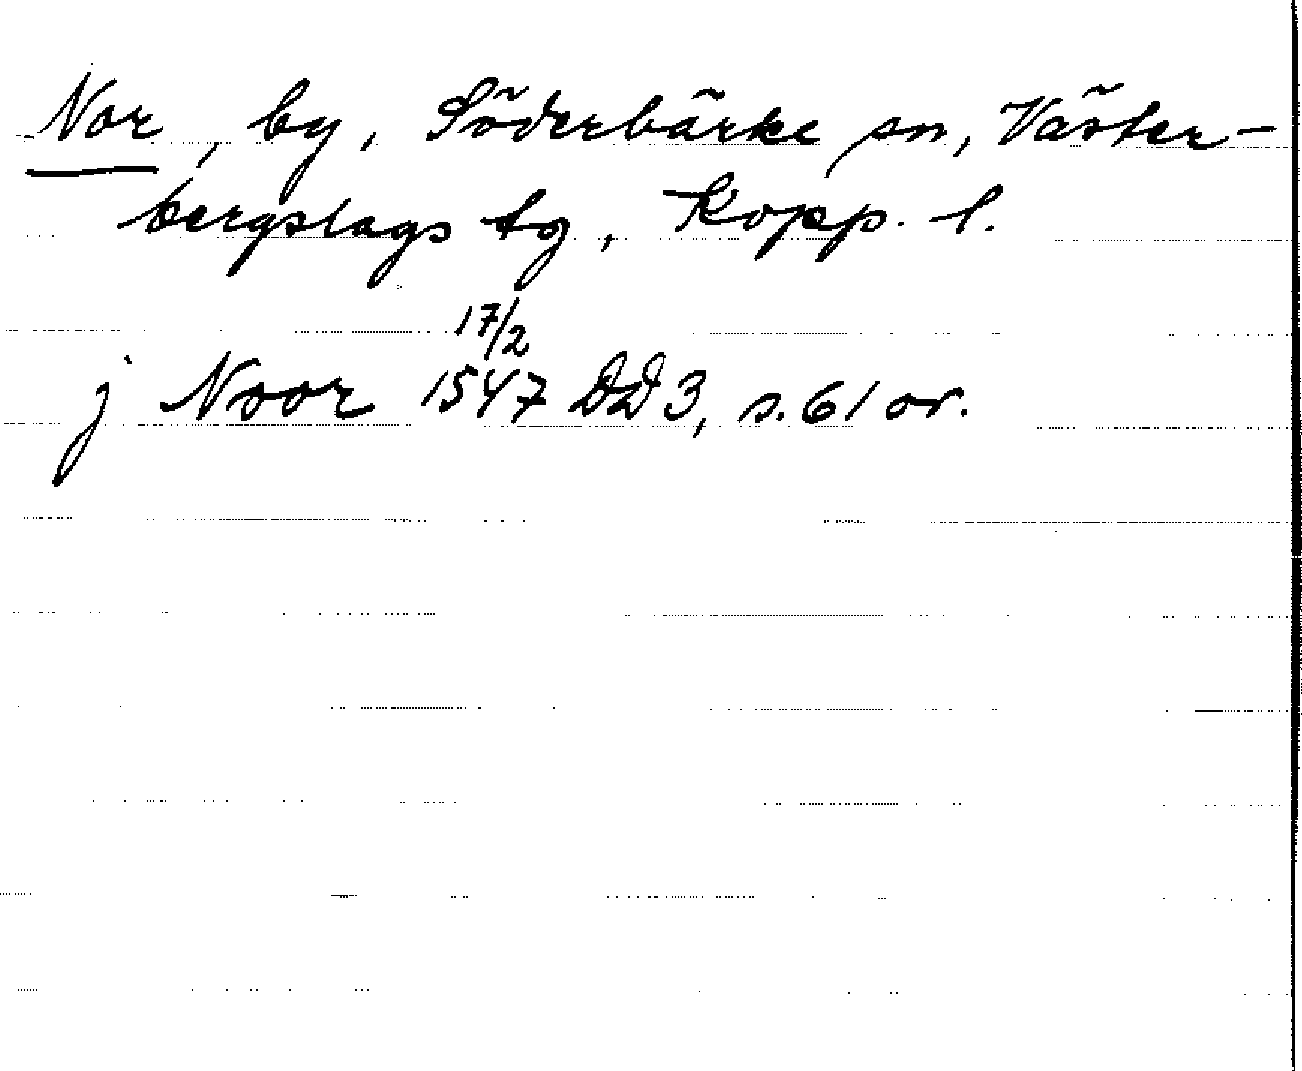 Nor, by, Söderbärke sn, Väster-
bergslags tg, Kopp. l.
17/2
j Noor 1547 DD 3, s. 61 or.